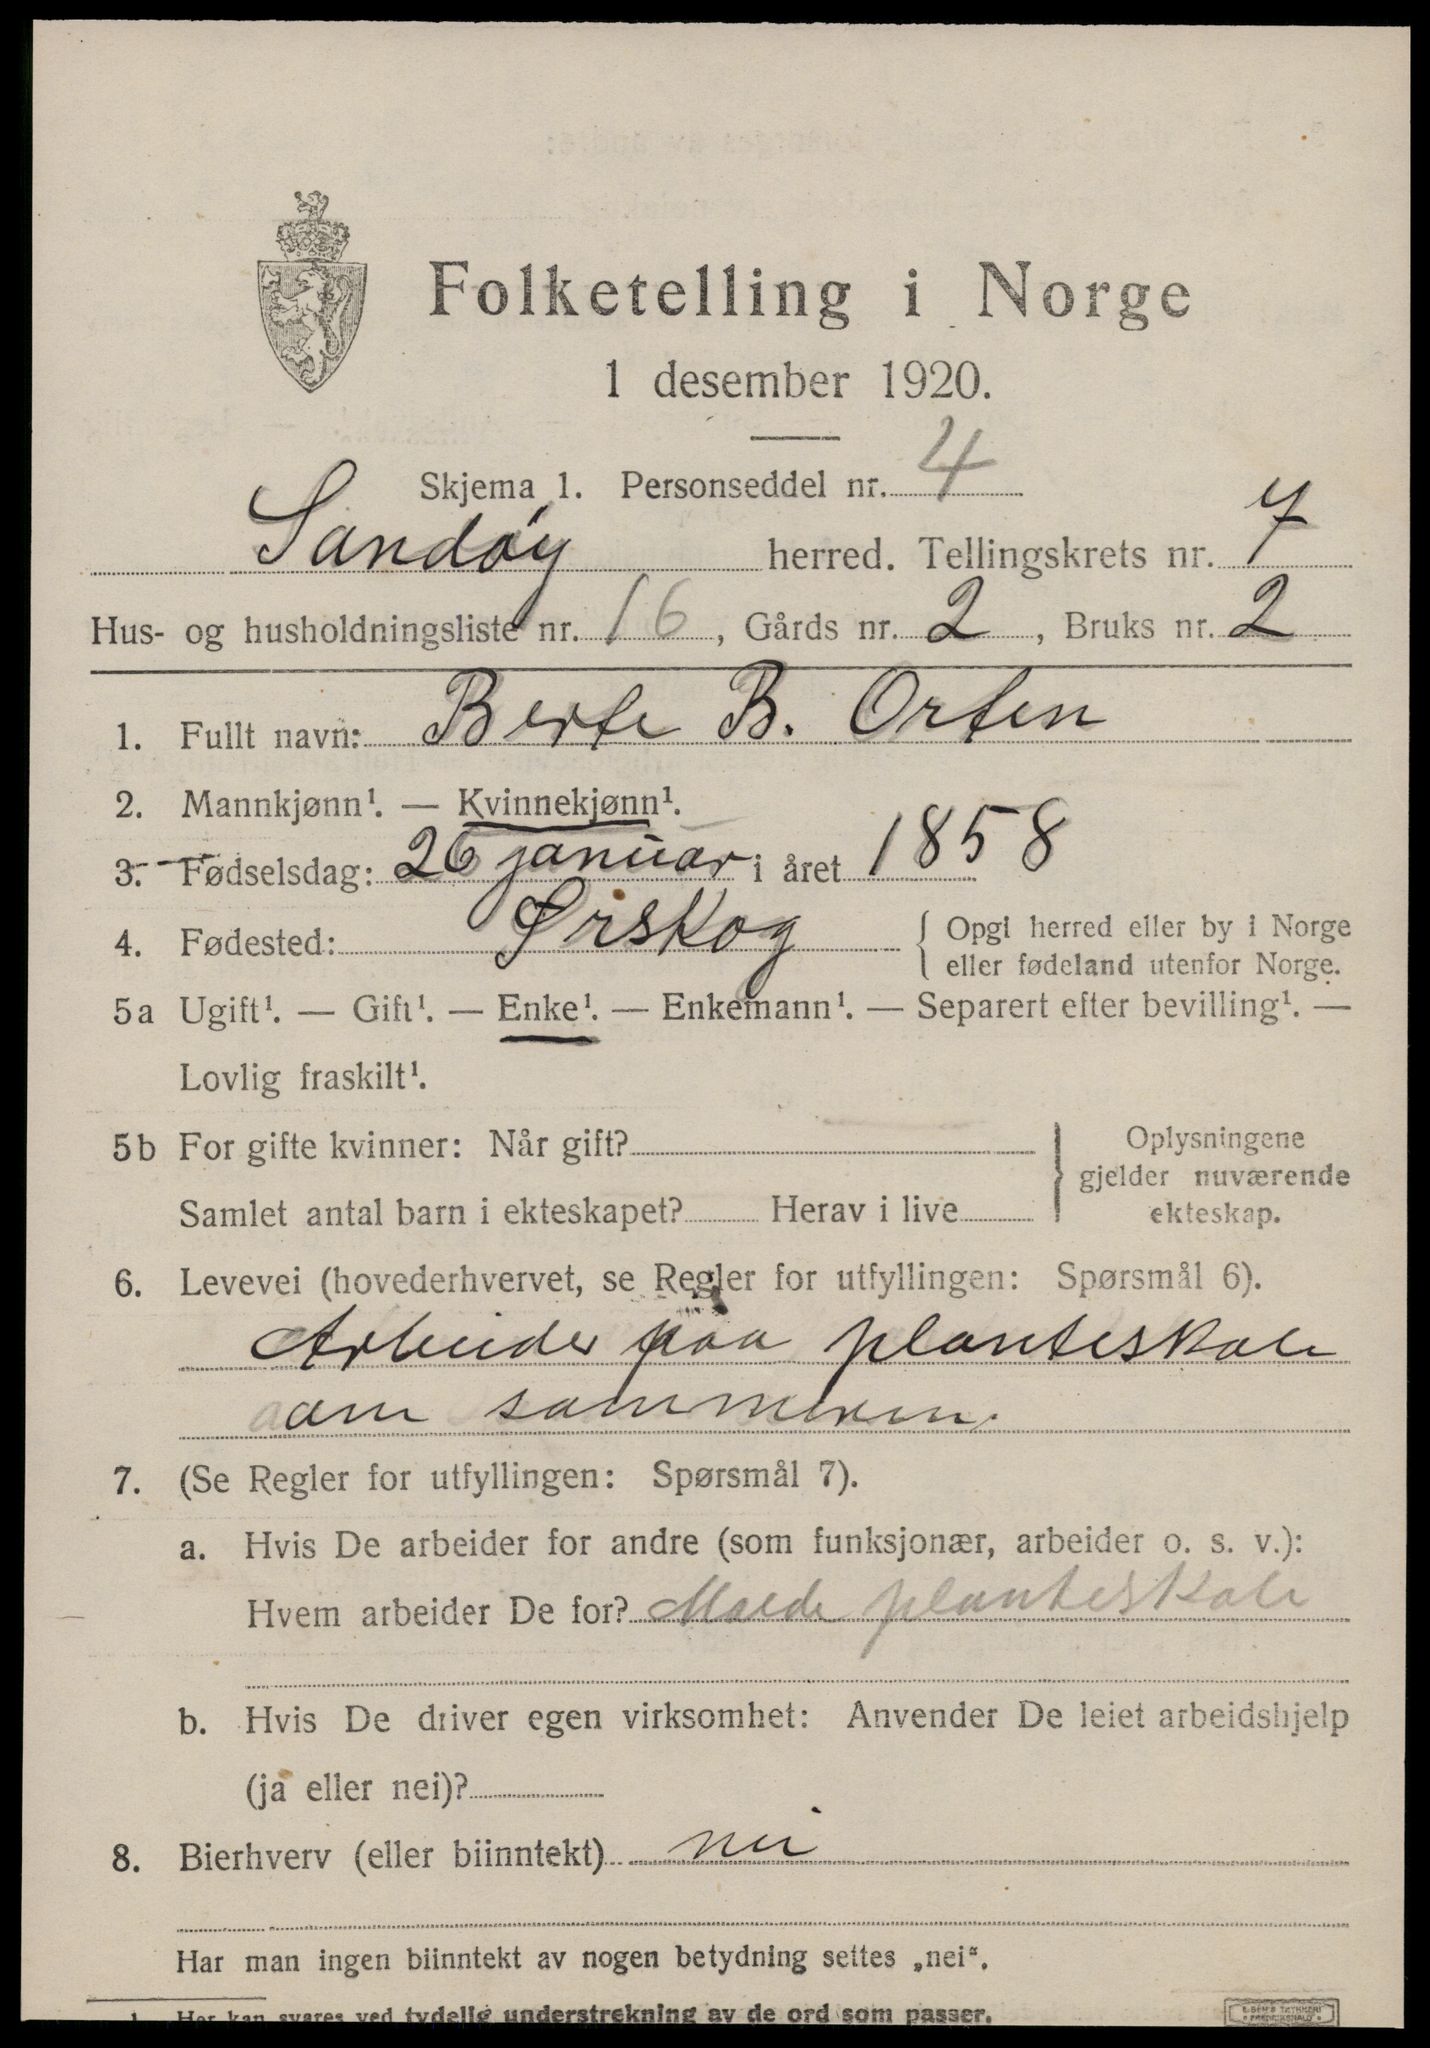 Folketelling i Norge
1 desember 1920.
Skjema 1. Personseddel nr. 4
Sandøy herred. Tellingskrets nr. 7
Hus- og husholdningsliste nr. 16, Gårds nr. 2, Bruks nr. 2
1. Fullt navn: Berte B. Orten
2. Mannkjønn¹. — Kvinnekjønn¹.
3. Fødselsdag: 26 januar i året 1858
4. Fødested: Ørskog { Opgi herred eller by i Norge
eller fødeland utenfor Norge.
5a Ugift¹. — Gift¹. — Enke¹. — Enkemann¹. — Separert efter bevilling¹. —
Lovlig fraskilt¹.
5b For gifte kvinner: Når gift?
Samlet antal barn i ekteskapet? Herav i live
} Oplysningene
gjelder nuværende
ekteskap.
6. Levevei (hovederhvervet, se Regler for utfyllingen: Spørsmål 6).
Arbeider paa planteskole
om sommeren.
7. (Se Regler for utfyllingen: Spørsmål 7).
a. Hvis De arbeider for andre (som funksjonær, arbeider o. s. v.):
Hvem arbeider De for? Molde planteskole
b. Hvis De driver egen virksomhet: Anvender De leiet arbeidshjelp
(ja eller nei)?
8. Bierhverv (eller biinntekt) nei
Har man ingen biinntekt av nogen betydning settes „nei“.
1 Her kan svares ved tydelig understrekning av de ord som passer.